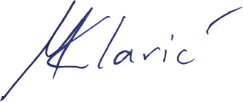 MKlarić